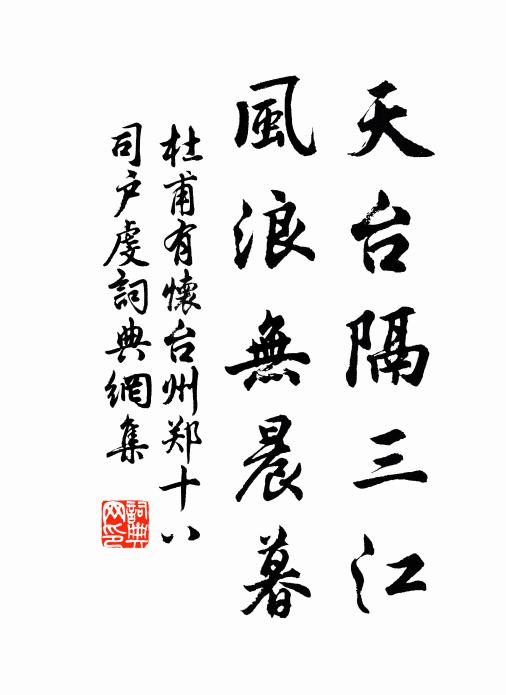 天台隔三江
風浪無晨暮
杜甫有懷台州郑十八
司户虔詞典網集
詞典
网印